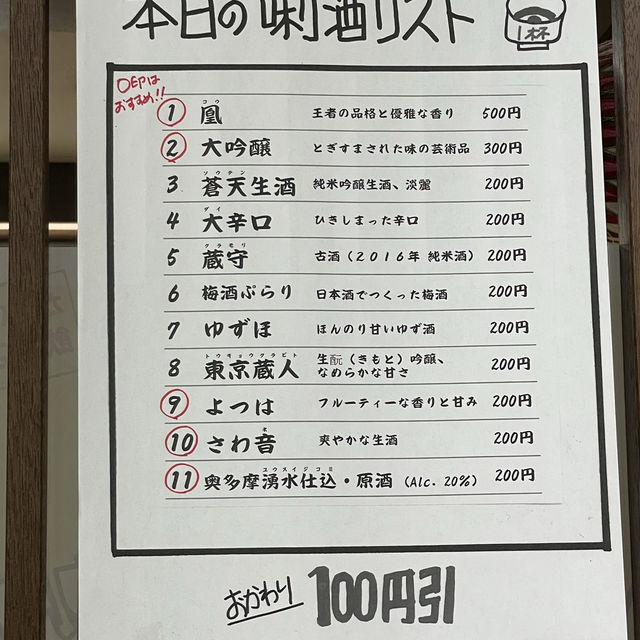 本日の唎酒リスト
1杯
○印は
おすすめ!!
コウ
1 凰 王者の品格と優雅な香り 500円
2 大吟醸 とぎすまされた味の芸術品 300円
ソウテン
3 蒼天生酒 純米吟醸生酒、淡麗 200円
ダイ
4 大辛口 ひきしまった辛口 200円
クラモリ
5 蔵守 古酒(2016年 純米酒) 200円
6 梅酒ぷらり 日本酒でつくった梅酒 200円
7 ゆずほ ほんのり甘いゆず酒 200円
トウキョウクラビト
8 東京蔵人 生酛(きもと)吟醸、
なめらかな甘さ 200円
9 よつは フルーティーな香りと甘み 200円
ネ
10 さわ音 爽やかな生酒 200円
ユウスイジコミ
11 奥多摩湧水仕込・原酒 (Alc. 20%) 200円
おかわり 100円引